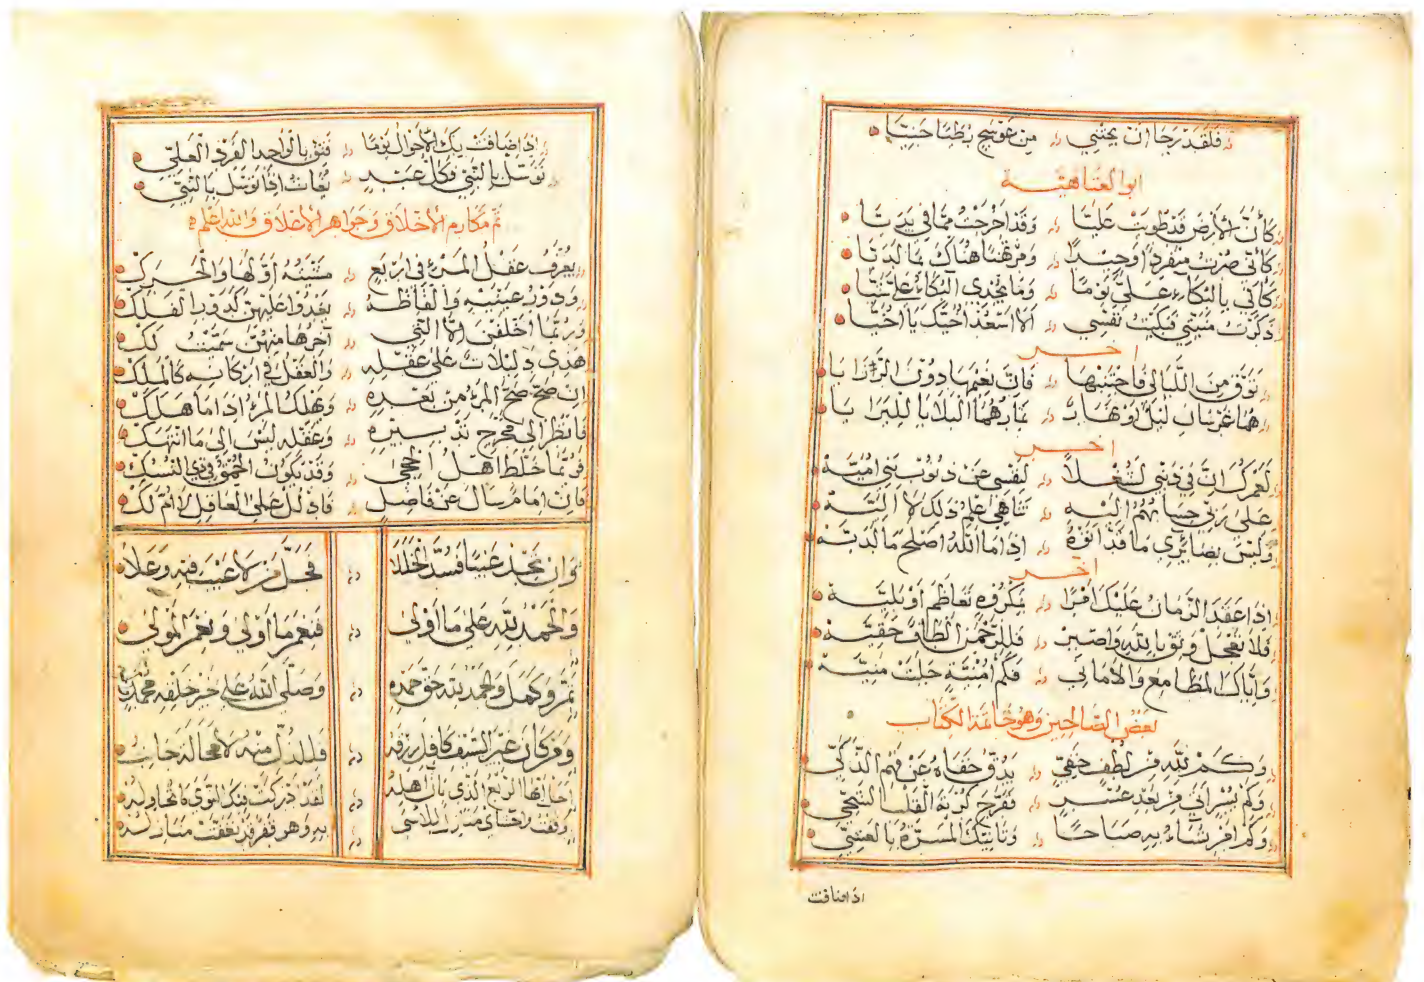 فلقد رجا ان يجتني من عوسج رطبا جنيا
ابو العتاهية
كأن الأرض قد طويت عليا وقد اخرجت مما في يديا
كأني صرت منفردا وحيدا ومرتهنا هناك بما لديا
كأني بالبكاء علي يوما وما يجدي البكاء علي شيا
ذكرت منيتي فبكيت نفسي ألا اسعد اخيك يا اخيا
اخر
توق من الليالي فاجتنبها فان نعيمها دون الرزايا
هما غربان ليل او نهار البلايا للبرايا
اخر
لعمرك ان في ذنبي لشغلا لنفسي عن ذنوب بني امية
على ربي حسابهم اليه تناهى علم ذلك لا اليه
وليس بضائري ما قد اتوه اذا ما الله اصلح ما لديه
اخر
اذا عقد الزمان عليك امرا بمكروه تعاظم او بليه
فلا تعجل وثق بالله واصبر فللرحمن الطاف خفيه
واياك المطامع والأماني فكم أمنية جلبت منيه
بعض الصالحين وهو خاتمة الكتاب
وكم لله من لطف خفي يدق خفاه عن فهم الذكي
وكم يسر اتى من بعد عسر ففرج كربة القلب الشجي
وكم امر تساء به صباحا وتأتيك المسرة بالعشي
اذا ضاقت
اذا ضاقت بك الأحوال يوما فثق بالواحد الفرد العلي
توسل بالنبي فكل عبد يغاث اذا توسل بالنبي
تم مكارم الأخلاق وجواهر الأعلاق والله اعلم
يعرف عقل المرء في اربع مشيته أولها والحرك
ودور عينيه والفاظه يغدوا عليهن كدور الفلك
وربما اخلفن الا التي آخرها منهن سميت لك
هذي دليلات على عقله والعقل في اركانه كالملك
ان صح صح المرء من بعده ويهلك المرء اذا ما هلك
فانظر الى مخرج تدبيره وعقله ليس الى ما انتهك
فربما خلط اهل الحجى وقد يكون الحمق في ذي النسك
فان امام سال عن فاضل فادلل على العاقل لا ام لك
وان تجد عيبا فسد الخللا فجل من لا عيب فيه وعلا
والحمد لله على ما اولى فنعم ما أولى ونعم المولى
تم وكمل والحمد لله حق حمده وصلى الله على خير خلقه محمد
ومن كان غير السيف كافل رزقه فللذل منه لا محالة جانب
الربع الذي بان اهله لقد ادركت فيك النوى ما تحاوله
وقفت به وهو قفر قد تعفت منازله